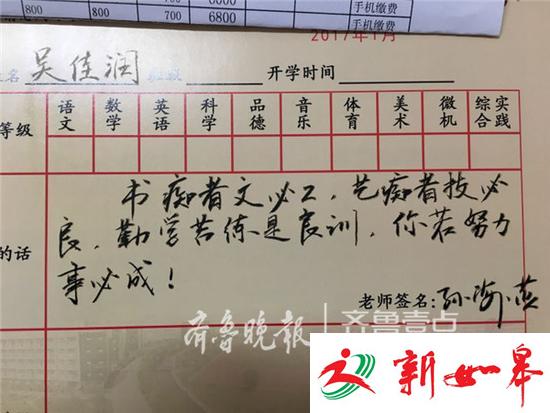 800 800 700 6000 手机缴费
800 700 6800 手机缴费
2017年1月
姓名 吴佳润 班级 开学时间
等级 语文 数学 英语 科学 品德 音乐 体育 美术 微机 综合实践
书痴者文必工,艺痴者技必
良,勤学苦练是良训,你若努力
事必成!
的话
老师签名:孙海燕
齐鲁晚报 齐鲁壹点
新如皋